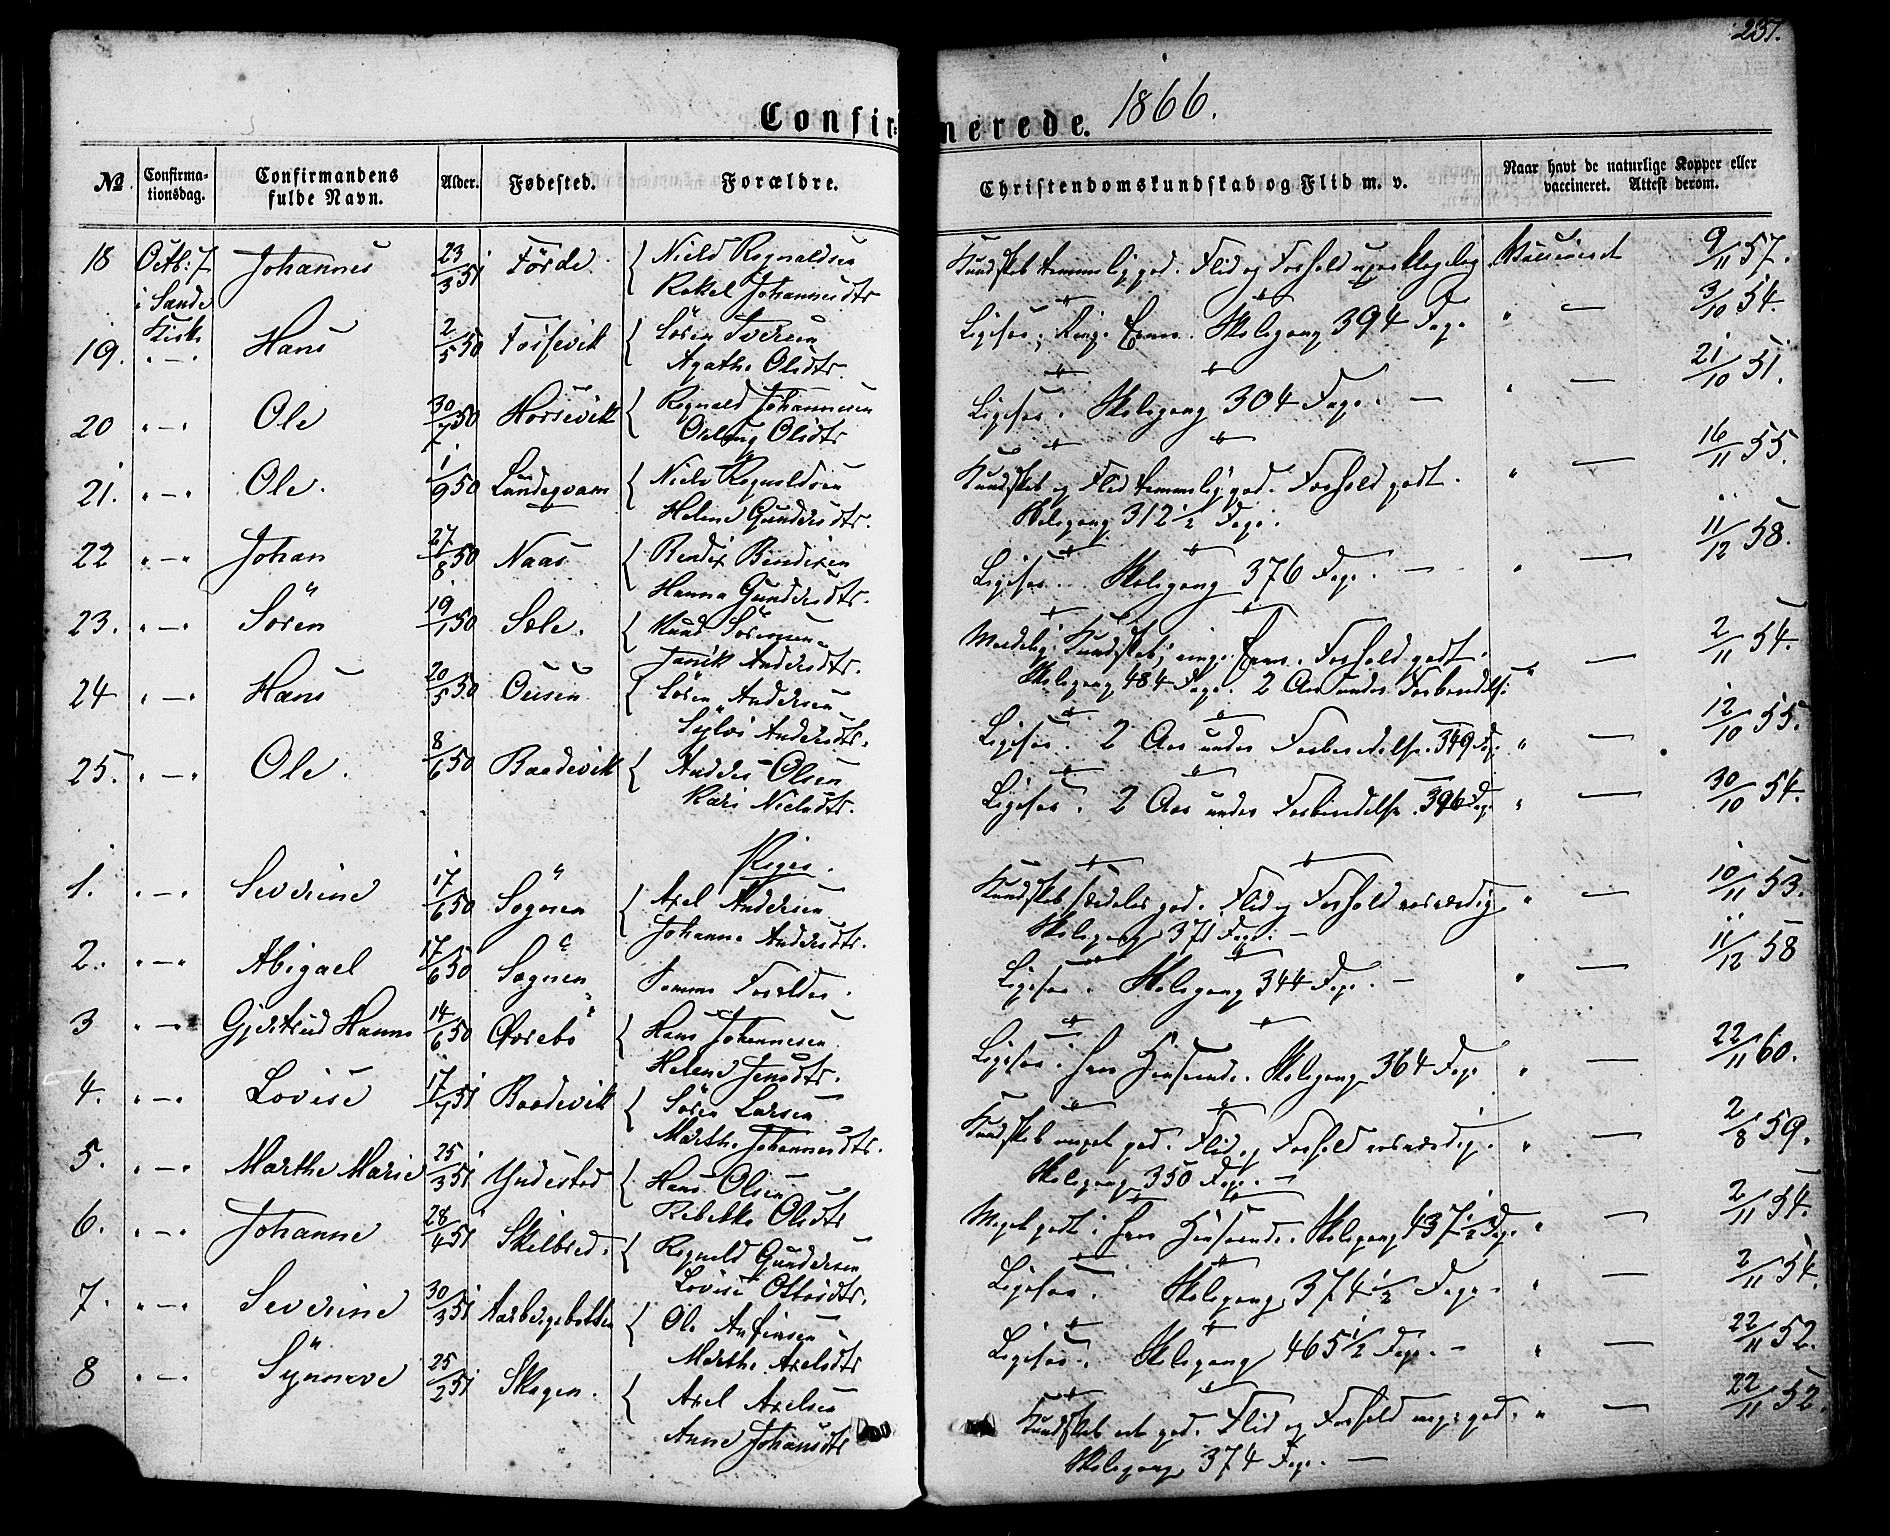 237.
Confirmerede. 1866.
No. Confirmationsdag. Confirmandens fulde Navn. Alder. Fødested. Forældre. Christendomskundskab og Flid m. v. Naar havt de naturlige Kopper eller vaccineret. Attest derom.
18 Octb: 7 Johannes 23/3 51 Förde { Niels Regnaldsen Kundskab temmelig god. Flid og Forhold upaaklagelig. Vaccineret 9/11 57.
i Sande Kirke Rakel Johannesdtr
19. " — " Hans 2/5 50 { Sören Iversen Ligesaa; ringe Evner. Skolegang 394 Dage " — 3/10 54.
Agathe Olsdtr.
20 " — " Ole 30/7 50 Horsevik { Regnald Johannesen Ligesaa. Skolegang 304 Dage. — " — 21/10 51.
Olsdtr
21. " — " Ole. 1/9 50 Landeqvam { Niels Regnaldsen Kundskab og Flid temmelig god. Forhold godt. " — 16/11 55.
Helene Gundersdtr. Skolegang 312 1/2 Dage.
22 " — " Johan 27/8 50 Naas { Bendix Bendixen Ligesaa. Skolegang 376 Dage. — " — 11/12 58.
Hanna Gundersdtr.
23. " — " Sören 19/1 50 Sæle. { Knud Sörensen Maadelig Kundskab; ringe Evner. Forhold godt. " — 2/11 54.
Andersdtr. Skolegang 484 Dage. 2 Aar under Forberedelse
24 " — " Hans 20/5 50 Ousen { Sören Andersen Ligesaa. 2 Aar under Forberedelse. 349 Dage " — 12/10 55.
Andersdtr.
25. " — " Ole. 8/6 50 Baadevik { Anders Olsen Ligesaa. 2 Aar under Forberedelse. 396 Dage " — 30/10 54.
Kari Nielsdtr.
Piger.
1. " — " Severine 17/6 50 Sognen { Axel Andersen Kundskab særdeles god. Flid og Forhold rosværdig " — 10/11 53.
Johanne Andersdtr. Skolegang 371 Dage. —
2. " — " Abigael 17/6 50 Sognen Samme Forældre. Ligesaa. Skolegang 344 Dage. — " — 11/12 58
3 " — " Gjertrud Hanne 14/6 50 Övrebö { Hans Johannesen Ligesaa. Skolegang 364 Dage " — 22/11 60.
Helene Jensdtr.
4. " — " Lovise 17/7 51 Baadevik { Sören Larsen Kundskab meget god. Flid og Forhold rosværdig. " — 2/8 59.
Marthe Johannesdtr. Skolegang 350 Dage. —
5. " — " Marthe Marie 25/3 51 Yndestad { Hans Olsen Meget godt i hver Henseende. Skolegang 437 1/2 Dage " — 2/11 54.
Rebekka Olsdtr
6. " — " Johanne 28/4 51 Skilbred. { Regnald Gundersen Ligesaa. Skolegang 374 1/2 Dage. " — 2/11 54.
Lovise
7. " — " Severine 30/3 51 Aarbergsbotten { Ole Anfinsen Ligesaa. Skolegang 465 1/2 Dage. — " — 22/11 52.
Marthe Axelsdtr
8 " — " Synneve 25/2 51 Skogen. { Axel Axelsen Kundskab god. Flid og Forhold meget god. " — 22/11 52.
Anne Johansdtr Skolegang 374 Dage. —